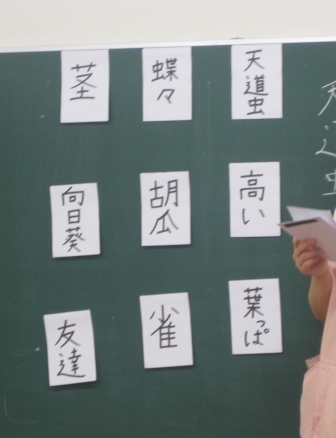 天道虫
蝶々
茎
高い
胡瓜
向日葵
葉っぱ
雀
友達